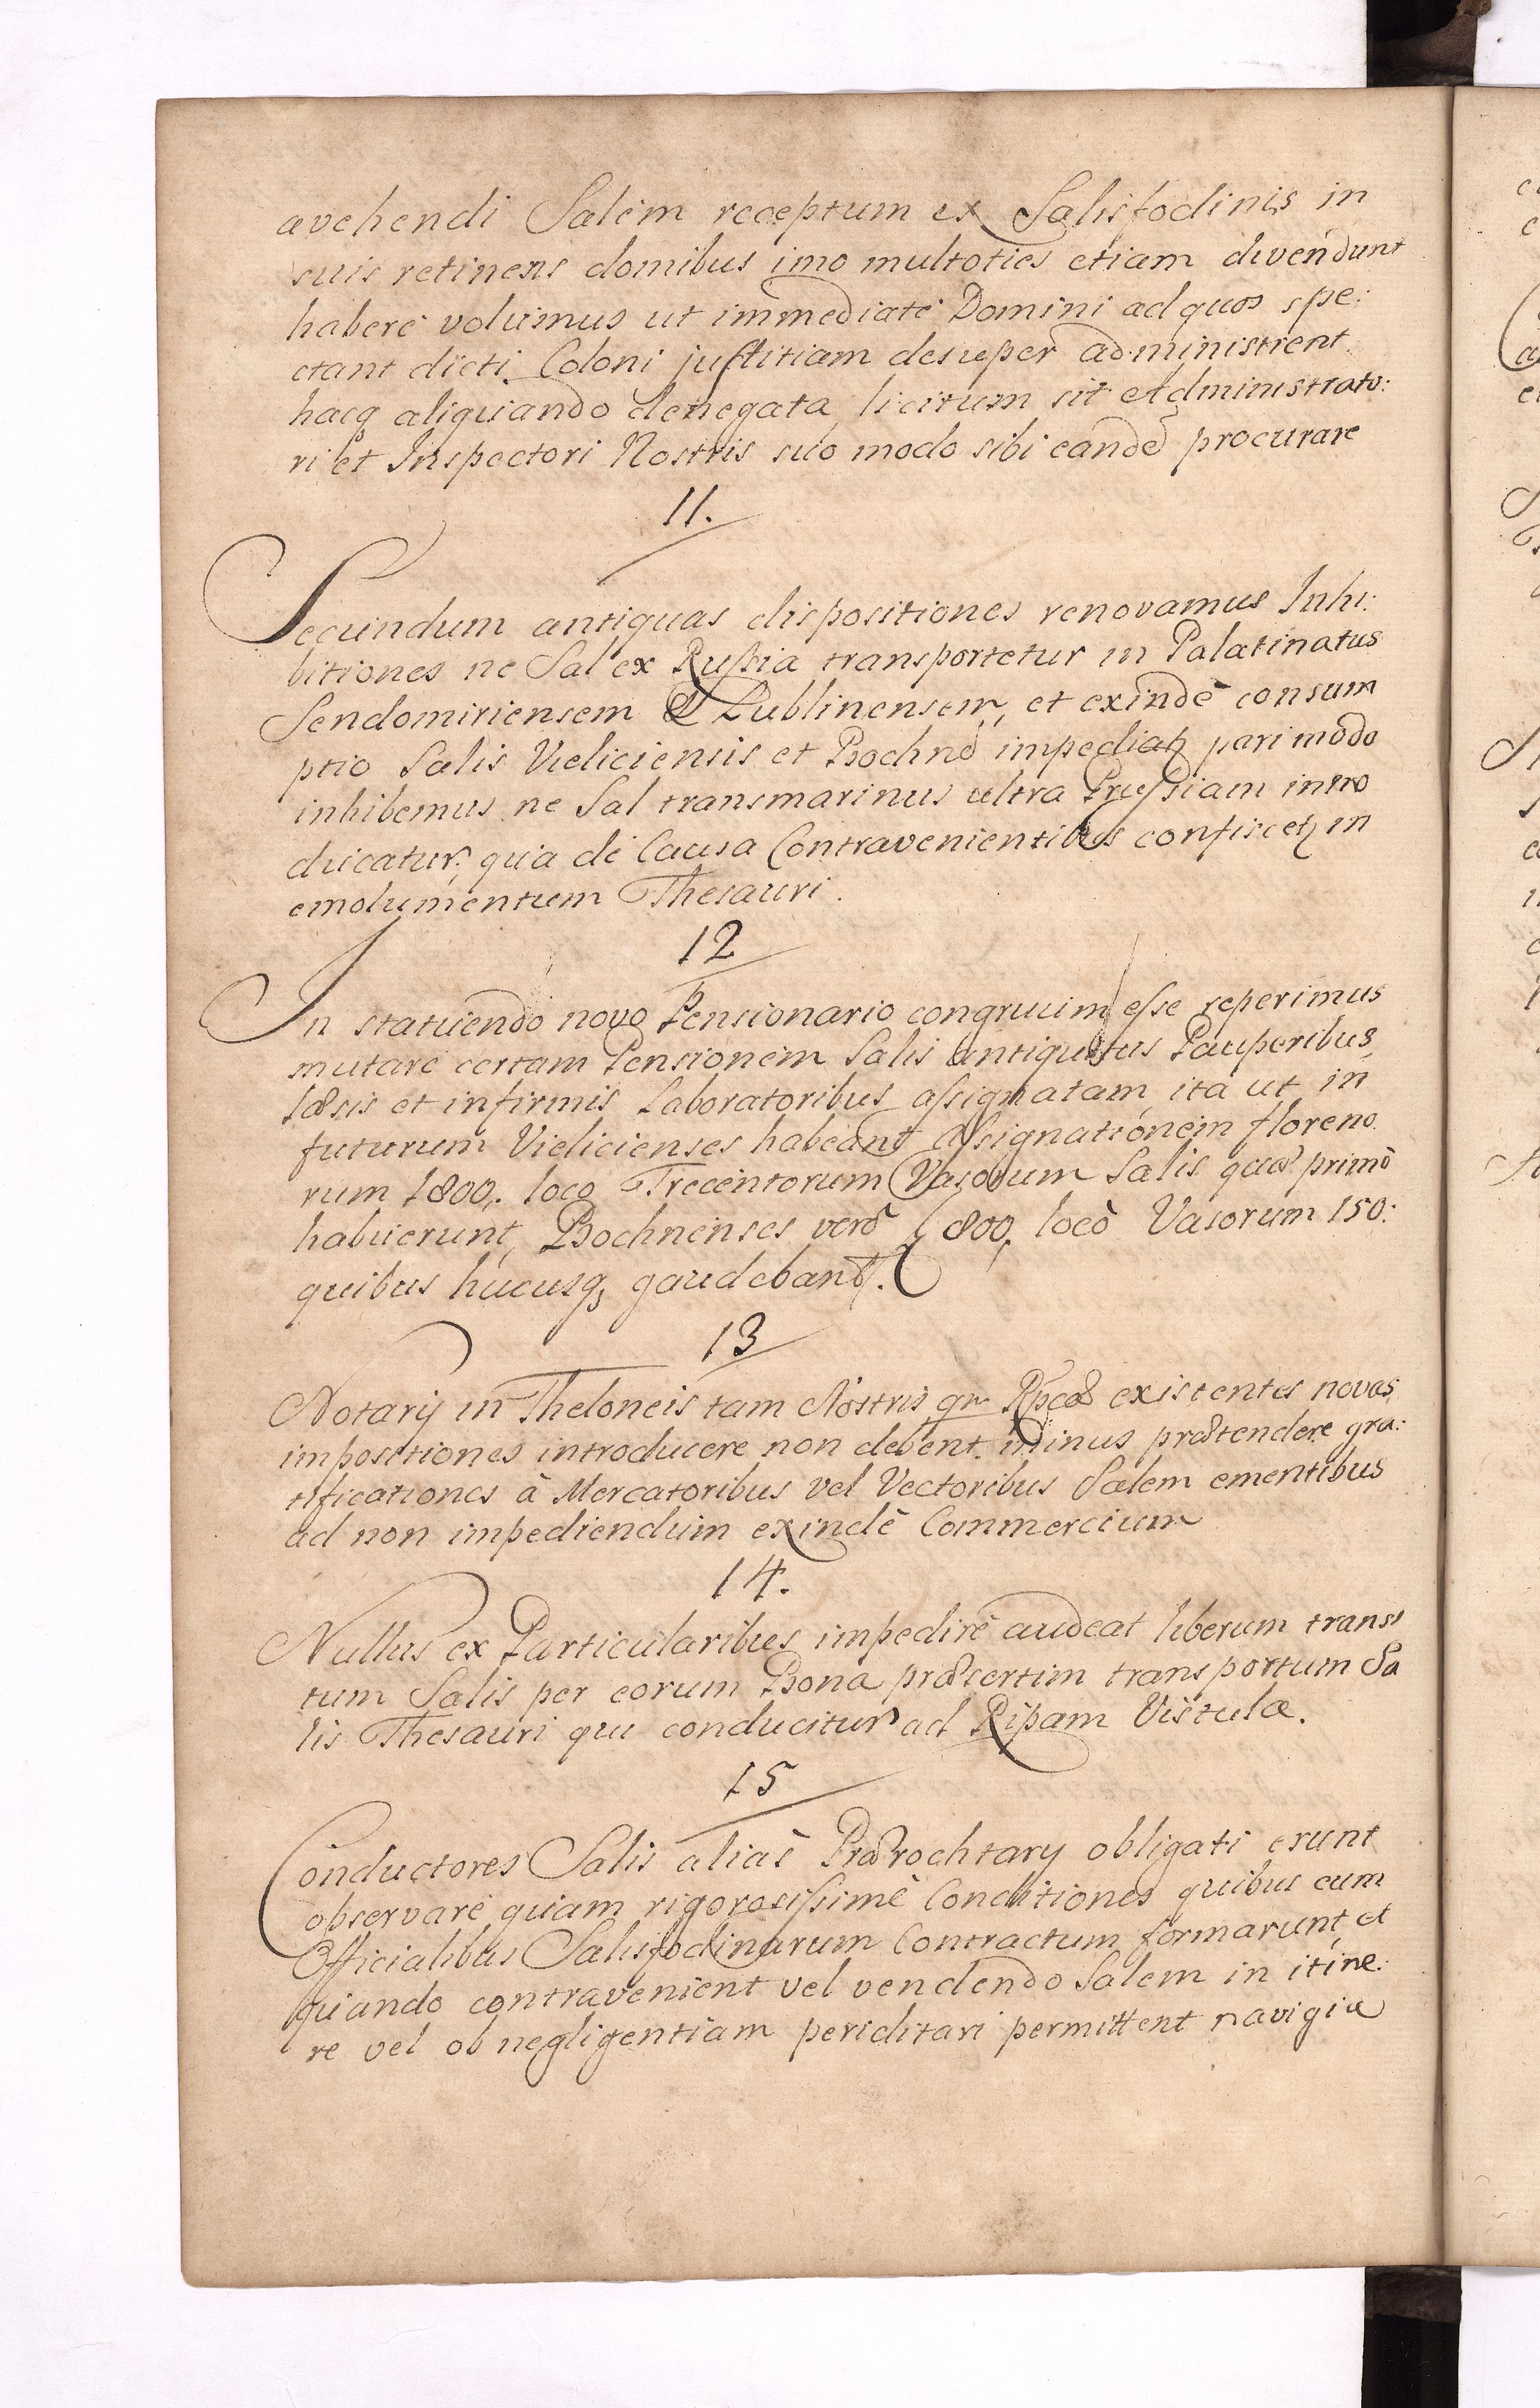 avehendi Salem receptum ex Salisfodinis in
suis retinens domibus imo multoties etiam divendunt
habere volumus ut immediate Domini ad quos spe:
ctant dicti Coloni justitiam desuper administrent
hacq aliquando denegata licitum sit Administrato:
ri et Inspectori Nostris suo modo sibi eandē procurare
11.
Secundum antiquas dispositiones renovamus Inhi:
bitiones ne Sal ex Russia transportetur in Palatinatus
Sendomiriensem & Lublinensem, et exindè consum
ptio Salis Vieliciensis et Bochnō impediatz pari modo
inhibemus ne Sal transmarinus ultra Prussiam intro
ducatur, qua de Causa Contravenientibus confiscetz in
emolumentum Thesauri.
12
In statuendo novo Pensionario congruum esse reperimus
mutare certam Pensionem Salis antiquitus Pauperibus
læsis et infirmis Laboratoribus assignatam, ita ut in
futurum Vielicienses habeant Assignationem floreno
rum 1800,. loco Trecentorum Vasorum Salis quæ primò
habuerunt, Bochnenses verò 800, locò Vasorum 150:
quibus hucusq, gaudebant.
13
Notarij in Theloneis tam Nostris qm Rpcæ existentes novas
impositiones introducere non debent. minus prætendere gra:
tificationes à Mercatoribus vel Vectoribus Salem ementibus
ad non impediendum exindè Commercium
14.
Nullus ex Particularibus impedire audeat liberum transi
tum Salis per eorum Bona præsertim transportum Sa
lis Thesauri qui conducitur ad Ripam Vistulæ.
15
Conductores Salis aliàs Prærochtary obligati erunt
observare quam rigorosissimè Conditiones quibus cum
Officialibus Salisfodinarum Contractum formarunt, et
quando contravenient vel vendendo Salem in itine:
re vel ob negligentiam periclitari permittent navigia